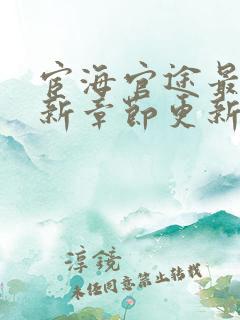 宦海官途最
新章节更新
淳镜
未经同意禁止转载